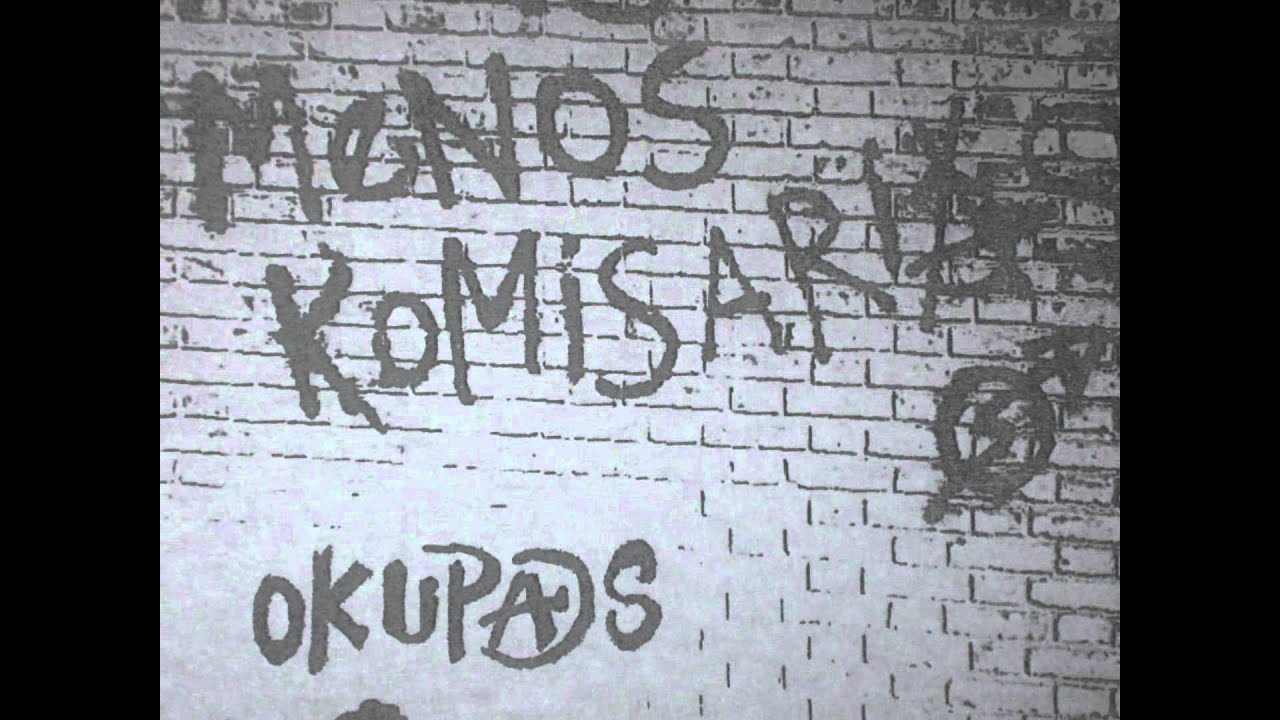 MeNOS
KOMiSARIAS
OKUPAS